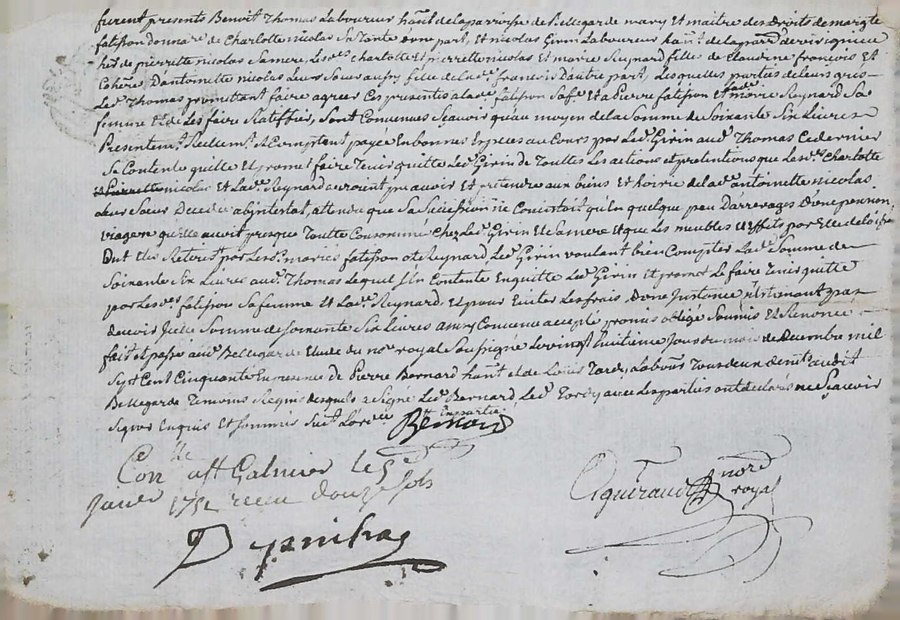 furent presents Benoit Thomas Laboureur hant. de la parroisse de Bellegarde mary Et maitre des Droits de margte
fatisson donnare de Charlotte nicolas Sa Tante dune part, Et nicolas Girin Laboureur hant.
de pierrette nicolas Samere, Les des charlotte et pierrette nicolas et marie Reynard filles de Claudine françois Et
Cohéres Dantoinette nicolas Leur Soeur aussy fille de lad. françois Dautre part, Lesquelles parties de Leurs gres
Led. Thomas promettant faire agreer Ces presentes a lad. fatisson Safe Et a Pierre fatisson Et marie Reynard Sa
femme Et de Les faire Ratiffier, Sont Convenues Sçavoir qu'au moyen de la Somme de Soixante Six Livres
Presentemt. Reellemt. Et Comptant payée En bonnes Especes au Cours par Led. Girin aud. Thomas Ce dernier
Sen Contente quitte Et promet faire Tenir quitte Led. Girin de Touttes Les actions et pretentions que Lesdes. Charlotte
et Pierrette nicolas Et Lad. Reynard auroient pu avoir Et pretendre aux biens Et hoirie de lad. antoinette nicolas
Leur Soeur Decedée abintestat, attendu que Sa Succession ne Consistoit qu'En quelque peu Darrerages Dune pension
viagere quelle avoit presque Toutte Consommé Chez Led. Girin Et Samere Et que Les meubles Et Effets par Elle delaissés
Ont Eté Retirés par Lesd. mariés fatisson et Reynard, Led. Girin voulant bien Compter Lad. Somme de
Soixante Six Livres aud. Thomas Lequel S'En Contente En quitte Led. Girin Et promet Le faire Tenir quitte
par Lesd. fatisson Sa femme Et Lad. Reynard, Et pour Eviter Les frais Dune Instance
devoir Jcelle Somme de Soixante Six Livres ainsy Convenu accepté promis obligé Soumis Et Renoncé
fait et passé aud. Bellegarde Etude du nore. royal Soussigné Le vingt huitieme Jour du mois de Decembre mil
Sept Cent Cinquante En presence de Pierre Bernard hant. Et de Louis Tardy Labour. Tous deux demt. audit
Bellegarde Temoins Requis desquels a Signé Led. Bernard, Led. Tardy avec Les parties ont declaré ne Sçavoir
Signer Enquis Et Sommés Suivt. Lord.ce
Bernard
Con.lle a St Galmier le 5e
Janvier 1751 receu douze Sols
nore
royal